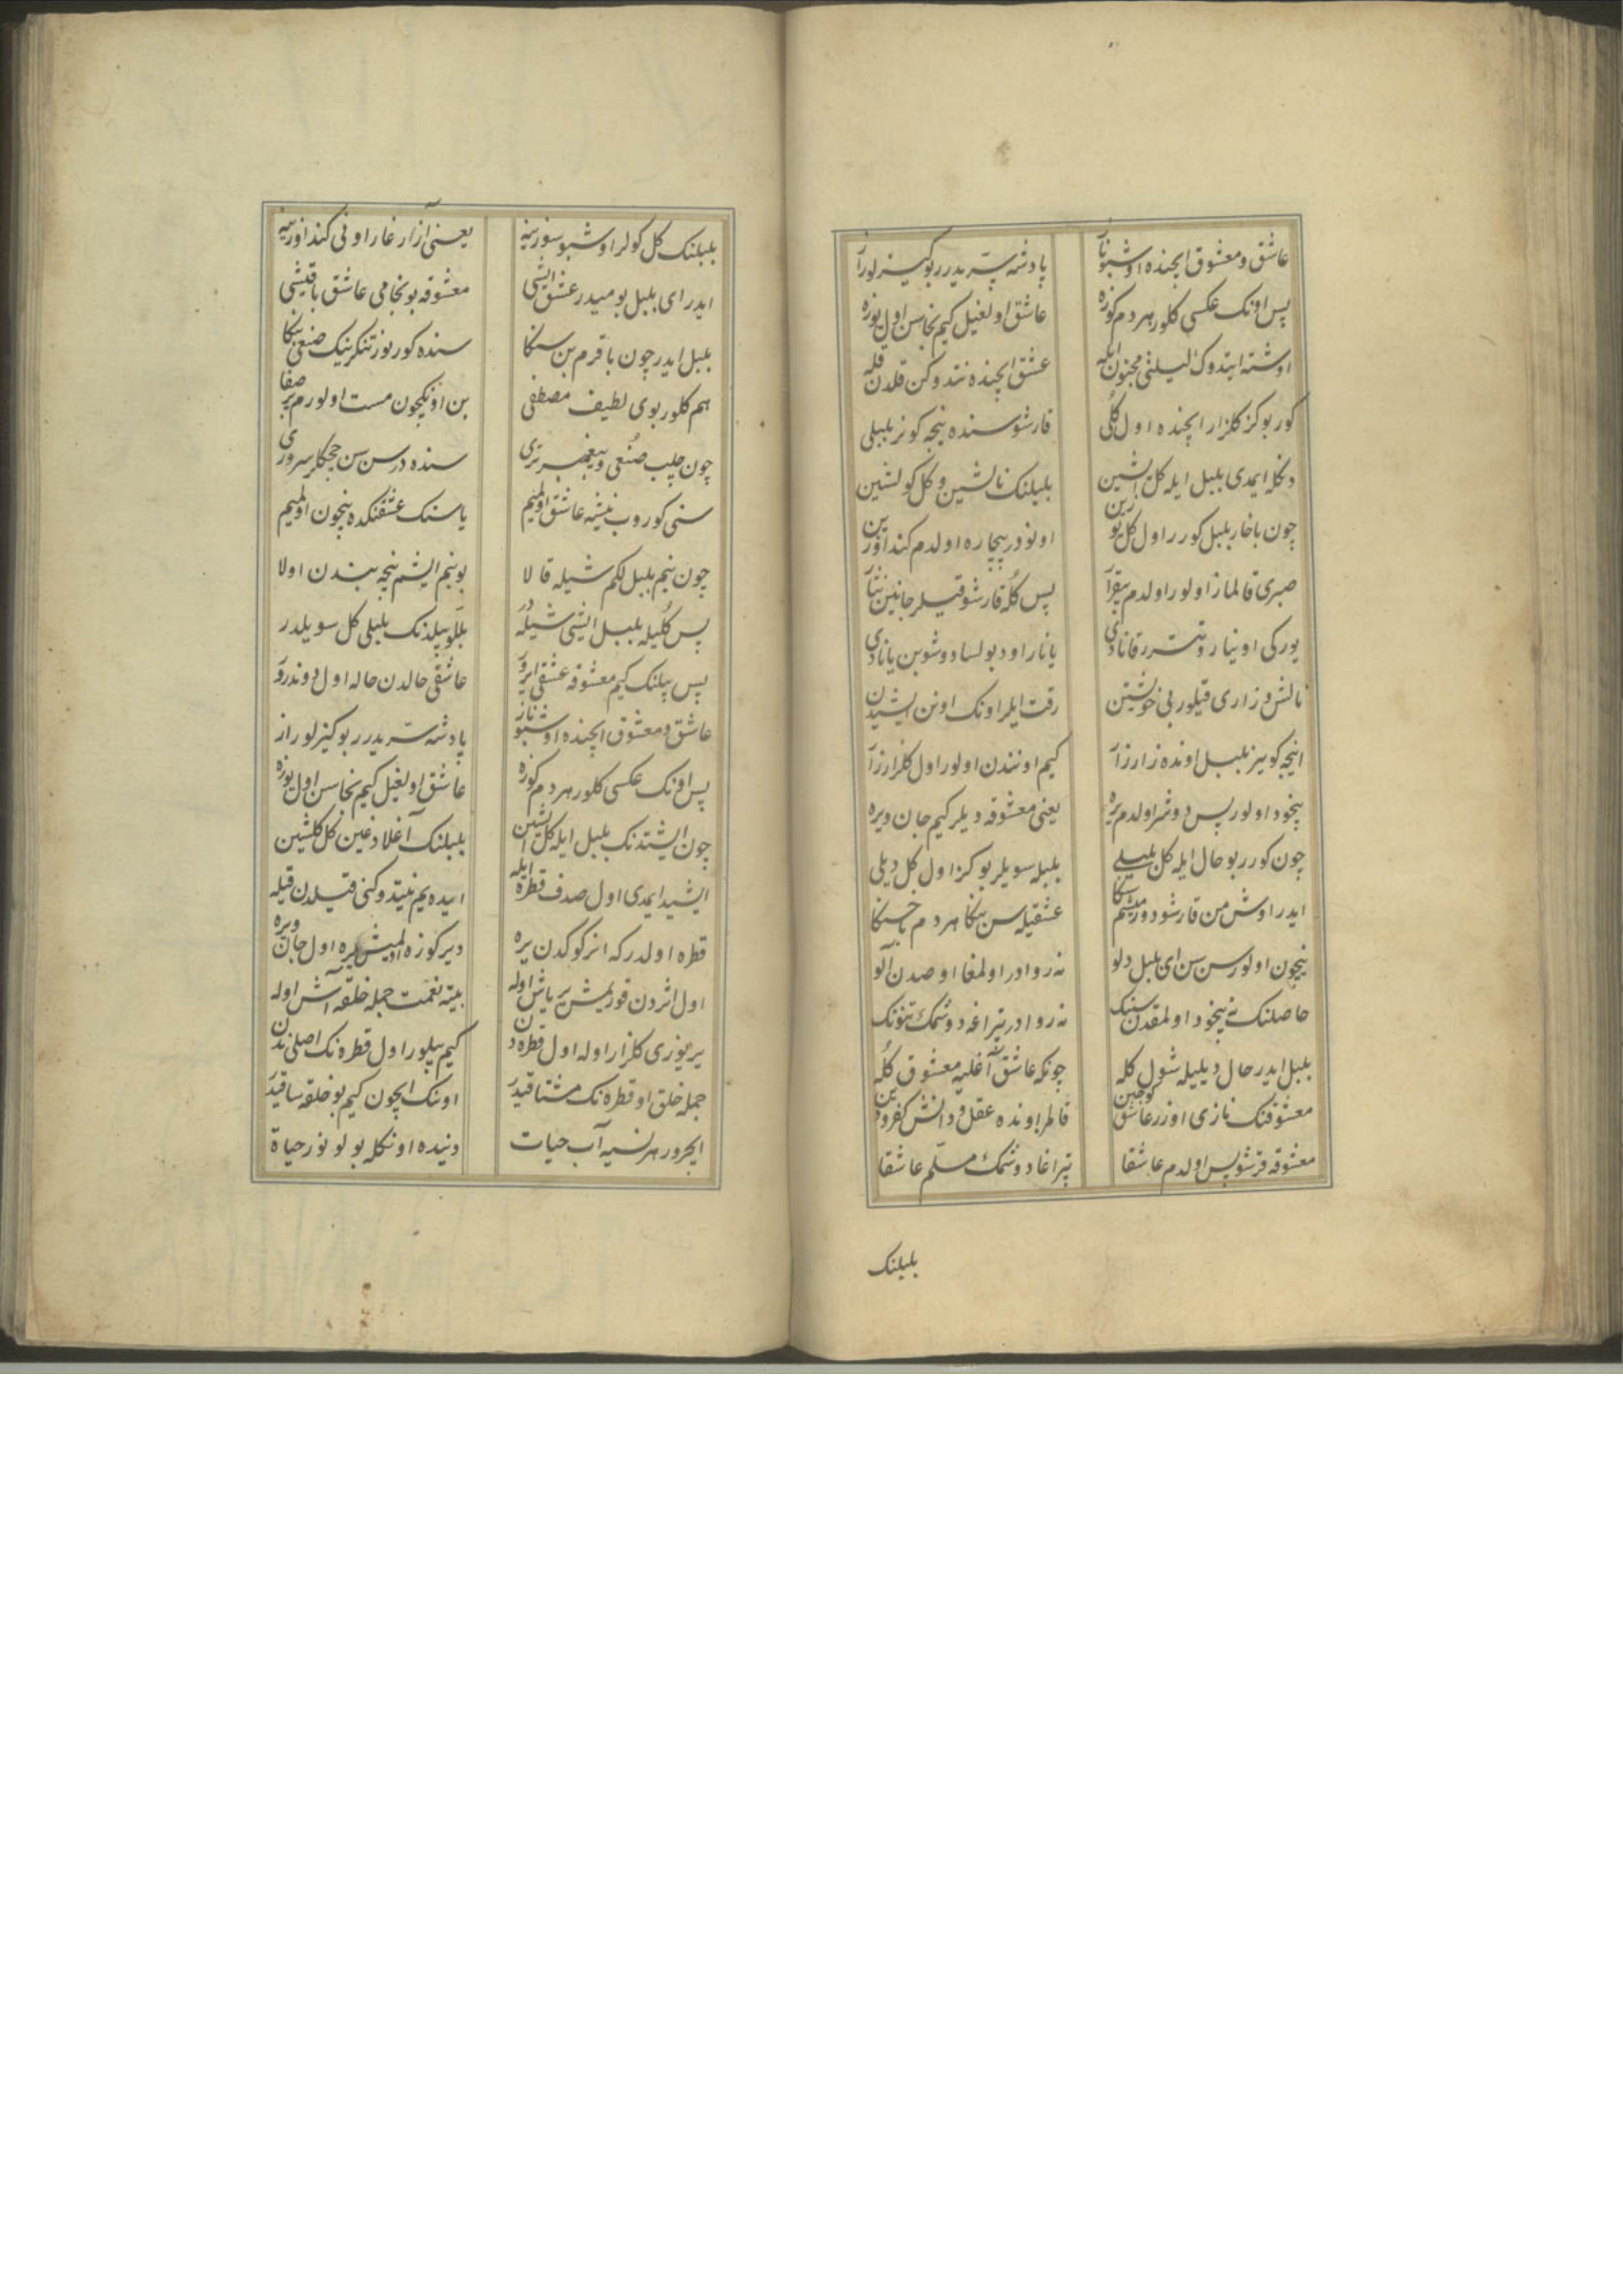 عاشق و معشوق ایچنده اوشبو ناز پادشه سریدرر بو کیزلو راز
پس اونک عکسی کلور هر دم کوزه عاشق اولغیل کیم نجاسن اول یوزه
اوشته ایتدوک لیلئی مجنون ایله عشق ایچنده نتدوکن قلدن قله
کور بو کز کلزار ایچنده اول کلی قارشوسنده نیجه کونر بلبلی
دکله ایمدی بلبل ایله کل ایشین بلبلنک نالشین و کل کولشین
چون باخار بلبل کورر اول کل یوزین اونودر بیچاره اولدم کنداوزین
صبری قالماز اولور اولدم بیقرار پس کله قارشو قیلر جانین نثار
یورکی اوینار و تتررر قانادی یانار اود بولسا دوشوبن یانادی
نالش و زاری قیلور بی خوشتین رقت ایلر اونک اونن ایشیدن
اینجه کویینر بلبل اونده زار زار کیم اونندن اولور اول کلزار زار
بیخود اولور پس دوشر اولدم یره یعنی معشوقه دیلر کیم جان ویره
چون کورر بو حال ایله کل بلبلی بلبله سویلر بو کز اول کل دیلی
ایدر اوش من قارشو دورمیشم سکا عشقیله سن بکا هر دم باخسکا
نیچون اولورسن سن ای بلبل دلو نه روادر اولمغا اوصدن الو
حاصلنک نه بیخود اولمقدن سنک نه روادر تپراغه دوشمک تنونک
بلبل ایدر حال دیلیله شول کله چونکه عاشق آغلیه معشوق کله
معشوقنک نازی اوزر عاشق کوجین قالمر اونده عقل و دانش
معشوقه قرشو پس اولدم عاشقا تپراغا دوشمک مسلم عاشقا
بلبلنک
بلبلنک کل کولر اوشبو سوزینه یعنی آزارغار اونی کنداوزینه
ایدر ای بلبل بومیدر عشق ایشی معشوقه بونجامی عاشق باقیشی
بلبل ایدر چون باقرم بن سنکا سنده کورنور تنکرینک صنعی بنکا
هم کلور بوی لطیف مصطفی بن اونکچون مست اولورم پر صفا
چون چلب صنعی و پیغمبر تری سنده در سن سن چچکلر سروری
سنی کوروب نیشه عاشق اولمیم یا سنک عشقنکده نیچون اولمیم
چون بنم بلبللکم شیله قالا بو بنم ایشم نیجه بندن اولا
پس کلیله بلبل ایشی شیله در بللو بیلدنک بلبلی کل سویلدر
پس بیلنک کیم معشوقه عشقی ایرور عاشقی حالدن حاله اول دوندرور
عاشق و معشوق ایچنده اوشبو ناز پادشه سریدرر بو کیزلو راز
پس اونک عکسی کلور هر دم کوزه عاشق اولغیل کیم نجاسن اول یوزه
چون ایشتدنک بلبل ایله کل ایشین بلبلنک آغلادغین کل کلشین
ایشید ایمدی اول صدف قطره ایله ایده یم نیتدوکنی قیلدن قیله
قطره اولدر که انر کوکدن یره دیرکوزه اولمیش یره اول جان ویره
اول اثردن قوریمش یر یاش اوله بیته نعمت جمله خلقه آش اوله
یر یوزی کلزار اوله اول قطره دن کیم بیلور اول قطره نک اصلی ندن
جمله خلق او قطره نک مشتاقیدر اونک ایچون کیم بو خلقه ساقیدر
ایچرور هر نسیه آب حیات دنیده اونکله بولونور حیاة